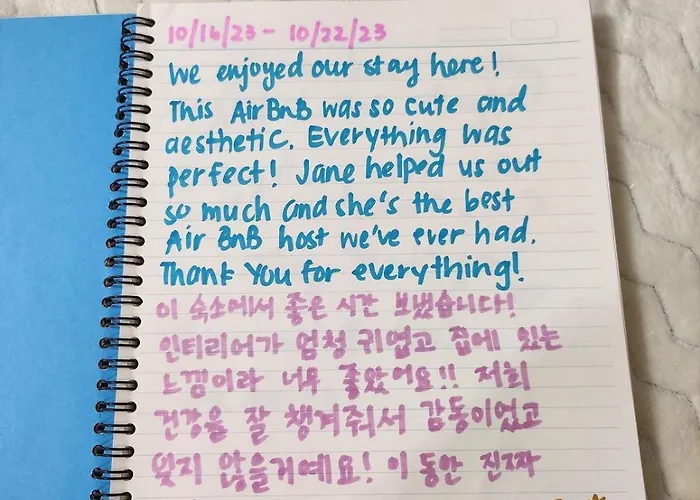 10/16/23 - 10/22/23
We enjoyed our stay here!
This AirBnB was so cute and
aesthetic. Everything was
perfect! Jane helped us out
so much and she's the best
Air BnB host we've ever had.
Thank You for everything!
이 숙소에서 좋은 시간 보냈습니다!
인테리어가 엄청 귀엽고 집에 있는
느낌이라 너무 좋았어요!! 저희
건강을 잘 챙겨줘서 감동이었고
잊지 않을거예요! 이 동안 진짜